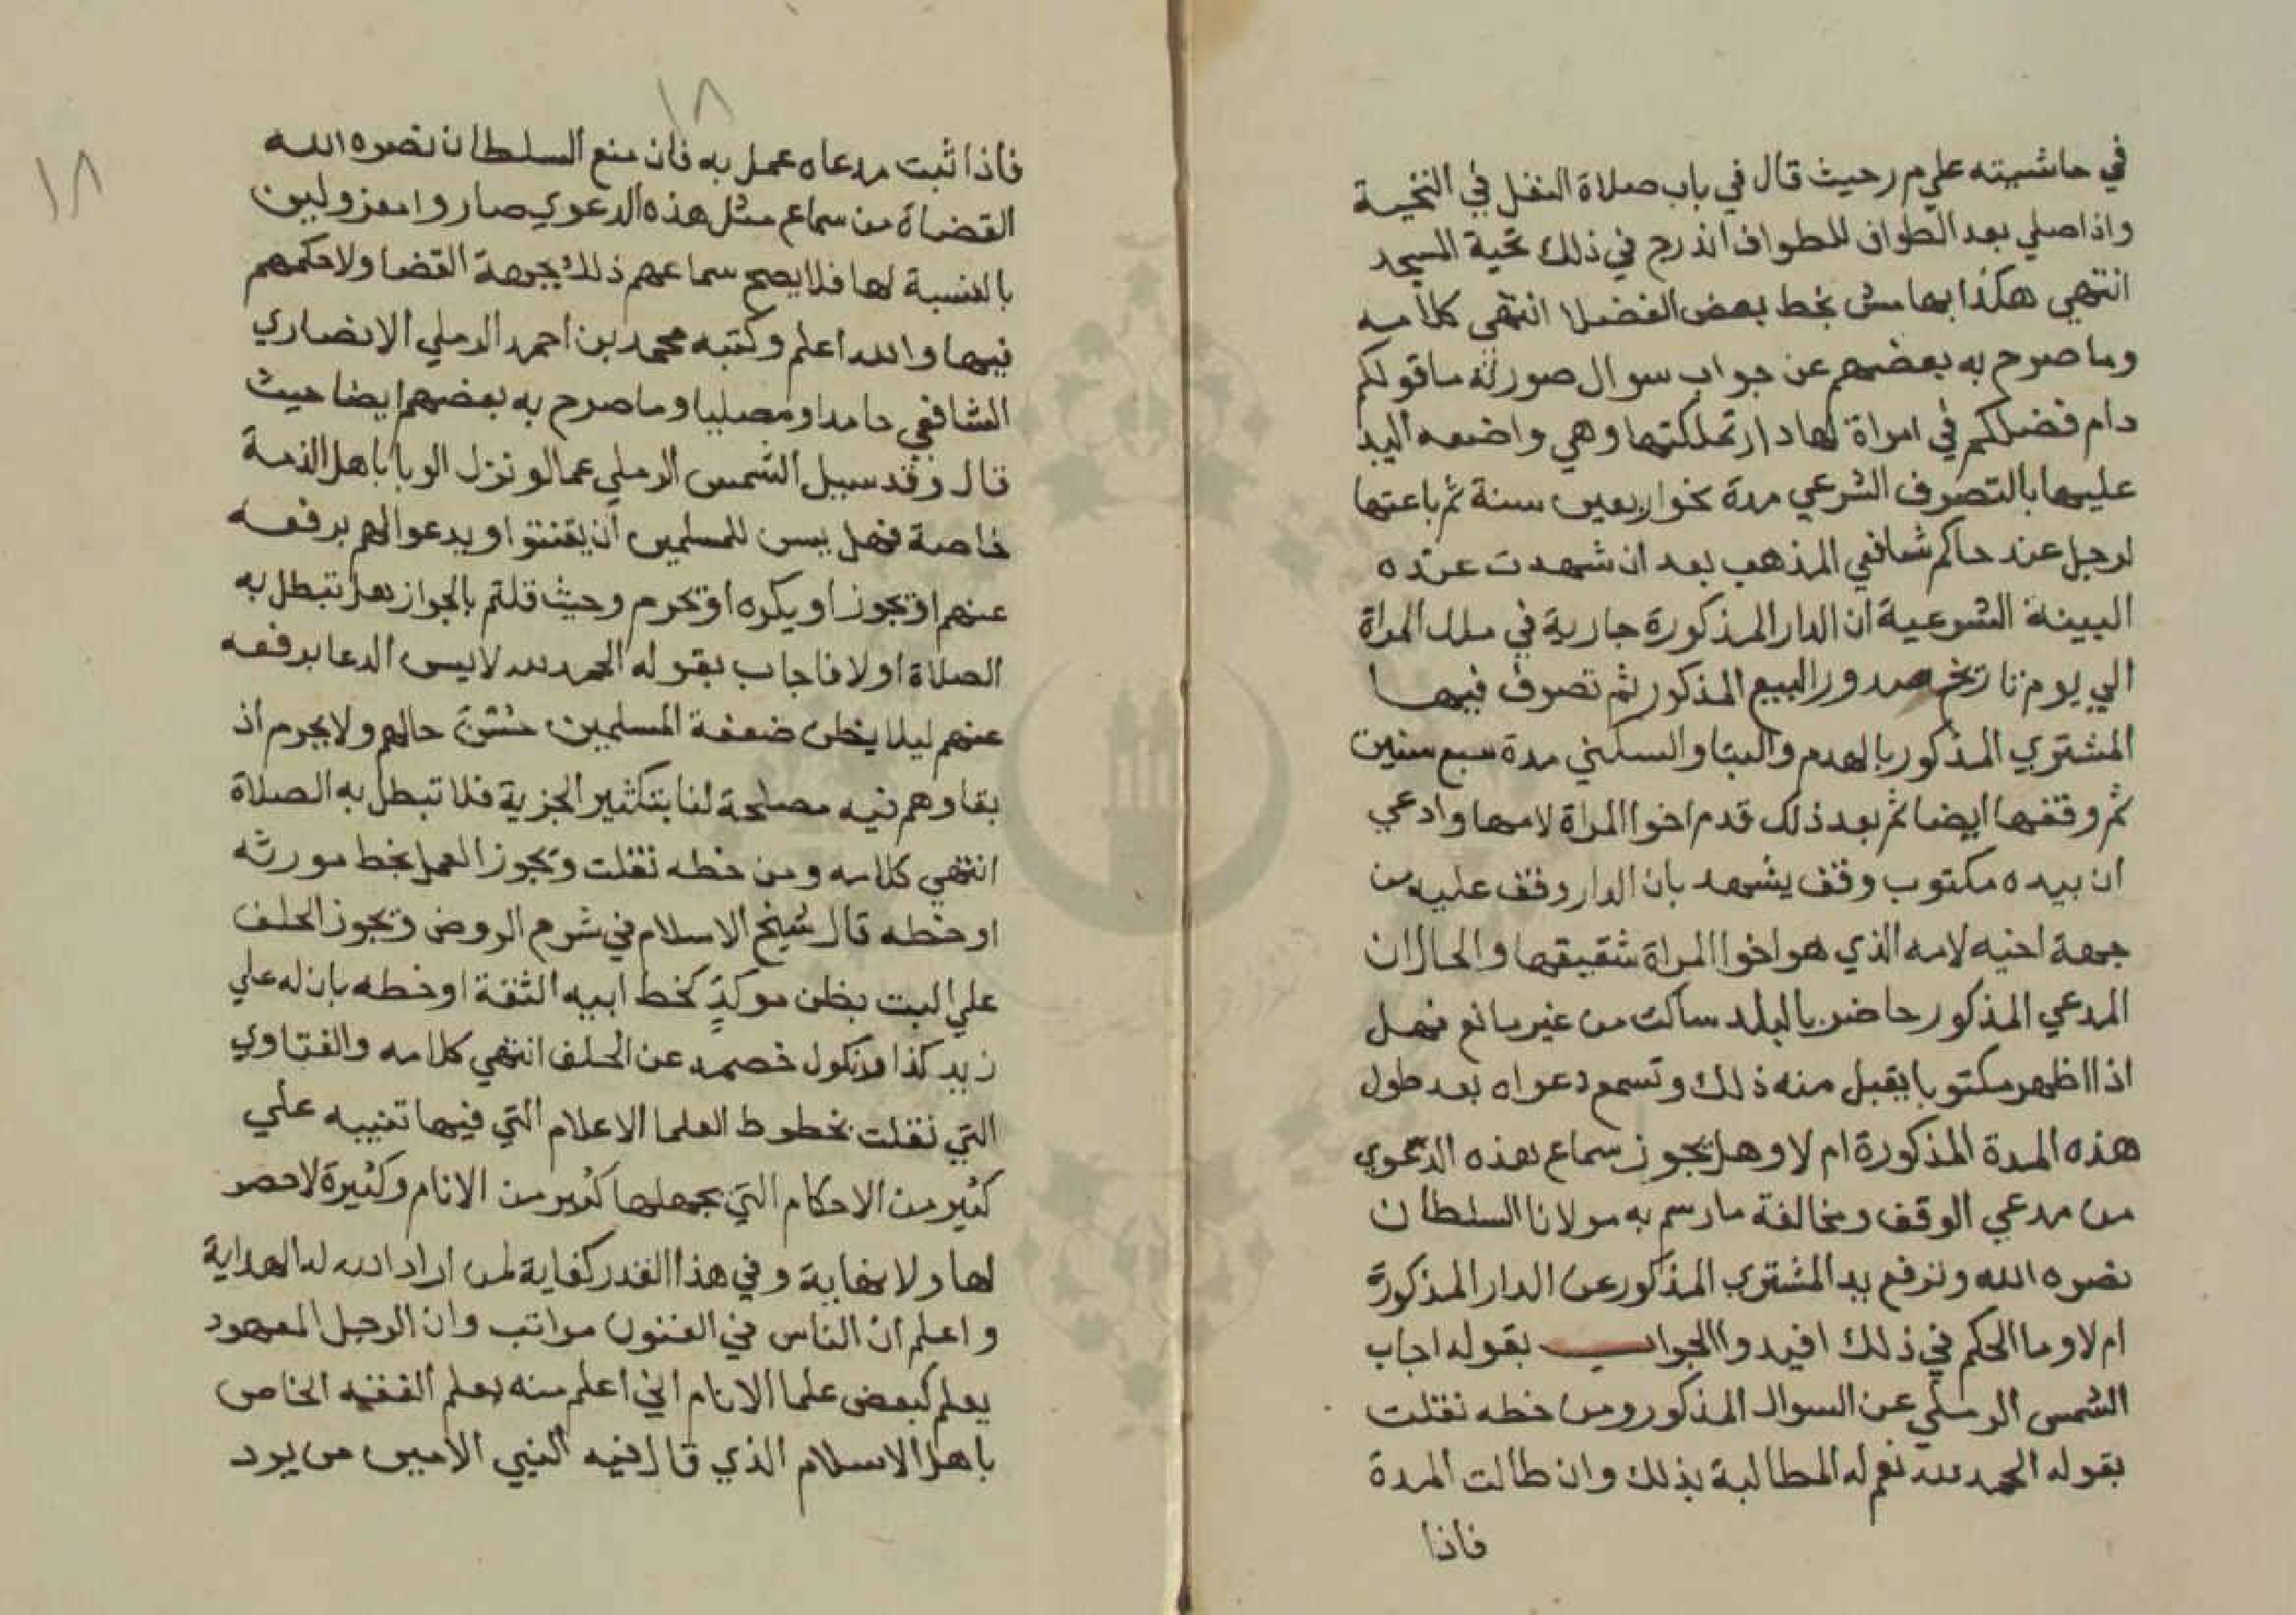 في حاشيته علي م ر حيث قال في باب صلاة النفل في التحية
واذا صلي بعد الطواف للطواف اندرج في ذلك تحية المسجد
انتهي هكذا بهامش بخط بعض الفضلا انتهى كلامه
وما صرح به بعضهم عن جواب سوال صورته ما قولكم
دام فضلكم في امراة لها دار تملكتها وهي واضعه اليد
عليها بالتصرف الشرعي مدة نحو اربعين سنة ثم باعتها
لرجل عند حاكم شافعي المذهب بعد ان شهدت عنده
البينة الشرعية ان الدار المذكورة جارية في ملك المراة
الي يوم تاريخ صدور البيع المذكور ثم تصرف فيها
المشتري المذكور بالهدم والبنا والسكني مدة سبع سنين
ثم وقفها ايضا ثم بعد ذلك قدم اخوا المراة لامها وادعي
ان بيده مكتوب وقف يشهد بان الدار وقف عليه من
جهة اخيه لامه الذي هو اخوا المراة شقيقها والحال ان
المدعي المذكور حاضر بالبلد ساكت من غير مانع فهل
اذا اظهر مكتوبا يقبل منه ذلك وتسمع دعواه بعد طول
هذه المدة المذكورة ام لا وهل يجوز سماع هذه الدعوي
من مدعي الوقف ومخالفة ما رسم به مولانا السلطان
نصره الله وترفع يد المشتري المذكور عن الدار المذكورة
ام لا وما الحكم في ذلك افيدوا الجواب بقوله اجاب
الشمس الرملي عن السوال المذكور ومن خطه نقلت
بقوله الحمد لله نعم له المطالبة بذلك وان طالت المدة
فاذا
١٨
١٨
فاذا ثبت مدعاه عمل به فان منع السلطان نصره الله
القضاة من سماع مثل هذه الدعوي صاروا معزولين
بالنسبة لها فلا يصح سماعهم ذلك بجهة القضا ولا حكمهم
فيها والله اعلم وكتبه محمد بن احمد الرملي الانصاري
الشافعي حامدا ومصليا وما صرح به بعضهم ايضا حيث
قال وقد سيل الشمس الرملي عما لو نزل الوبا باهل الذمة
خاصة فهل يسن للمسلمين ان يقنتوا ويدعوا لهم برفعه
عنهم او يجوز او يكره او يحرم وحيث قلتم بالجواز هل تبطل به
الصلاة او لا فاجاب بقوله الحمد لله لا يسن الدعا برفعه
عنهم ليلا يظن ضعفة المسلمين حسن حالهم ولا يحرم اذ
بقاوهم فيه مصلحة لنا بتكثير الجزية فلا تبطل به الصلاة
انتهي كلامه ومن خطه نقلت ويجوز العمل بخط مورثه
او خطه قال شيخ الاسلام في شرح الروض ويجوز الحلف
علي البت بظن موكدٍ كخط ابيه الثقة او خطه بان له علي
زيد كذا ونكول خصمه عن الحلف انتهي كلامه والفتاوي
التي نقلت بخطوط العلما الاعلام التي فيها تنبيه علي
كثير من الاحكام التي يجهلها كثير من الانام وكثيرة لا حصر
لها ولا نهاية وفي هذا القدر كفاية لمن اراد الله له الهداية
واعلم ان الناس في الفنون مراتب وان الرجل المعهود
يعلم كبعض علما الانام اني اعلم منه بعلم الفقه الخاص
باهل الاسلام الذي قال فيه النبي الامين من يرد